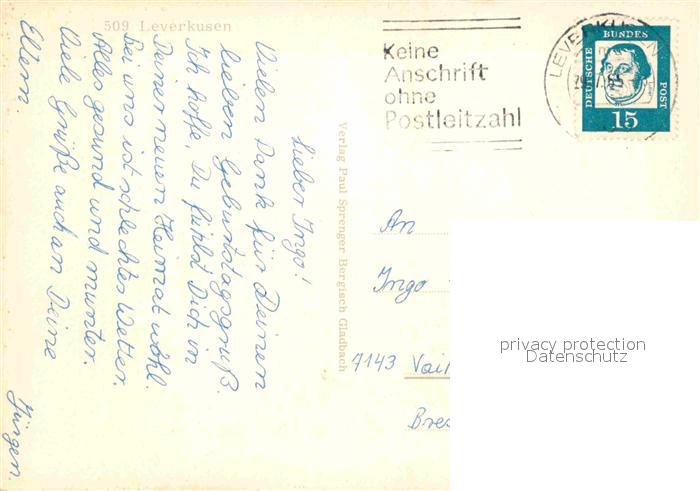 509 Leverkusen
Lieber Ingo!
Vielen Dank für Deinen
lieben Geburtstagsgruß.
Ich hoffe, Du fühlst Dich in
Deiner neuen Heimat wohl.
Bei uns ist schlechtes Wetter.
Alles gesund und munter.
Viele Grüße auch an Deine
Eltern.
Jürgen
Verlag Paul Sprenger Bergisch Gladbach
Keine
Anschrift
ohne
Postleitzahl
LEVERKUSEN
DEUTSCHE
BUNDES
POST
15
An
Ingo
7143 Vaih
Bre
privacy protection
Datenschutz